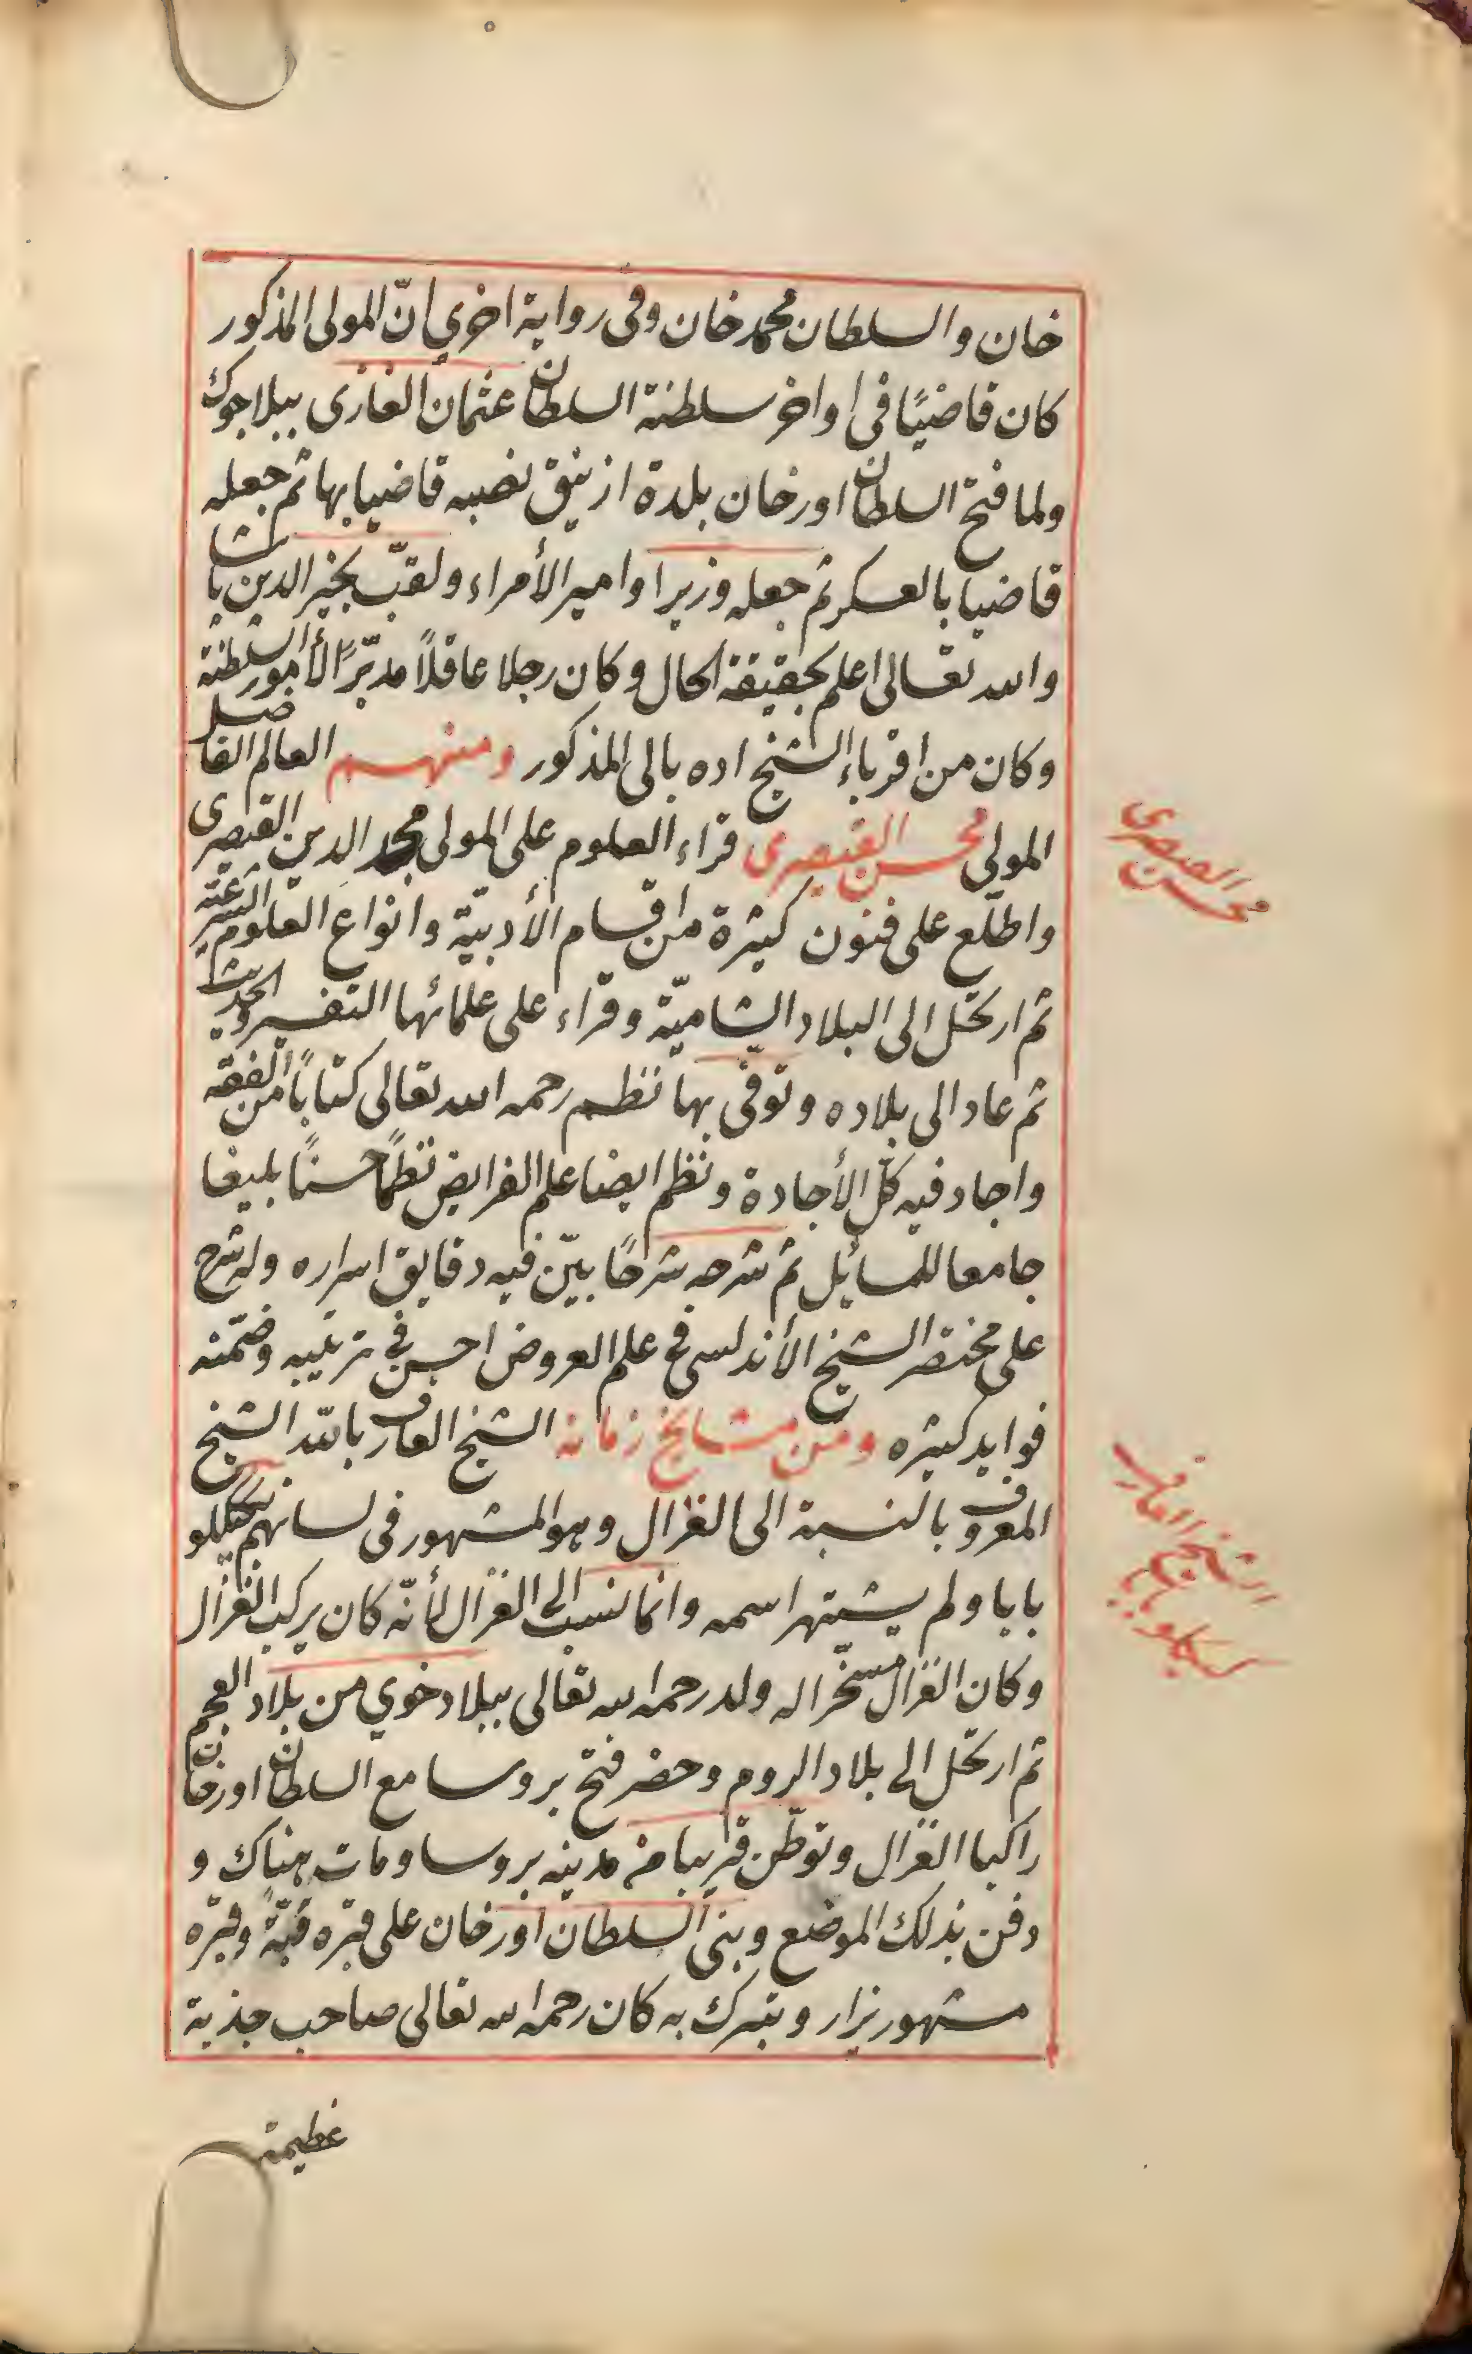 خان والسلطان محمد خان وفى رواية اخري انّ المولى المذكور
كان قاضيًا فى اواخر سلطنة السلطان عثمان الغازى ببلاجوك
ولما فتح السلطان اورخان بلدة ازنيق نصبه قاضيا بها ثم جعله
قاضيا بالعسكر ثم جعله وزيرا وامير الأمراء ولقّب بخير الدين باشا
والله تعالى اعلم بحقيقة الحال وكان رجلا عاقلاً مدبّرًا لأمور السلطنة
وكان من اقرباء الشيخ اده بالى المذكور ومنهم العالم الفاضل
المولى محسن القيصرى قراء العلوم على المولى مجد الدين القيصرى
واطلّع على فنون كثيرة من اقسام الأدبيّة وانواع العلوم الشرعيّة
ثم ارتحل الى البلاد الشاميّة وقراء على علمائها التفسير والحديث
ثم عاد الى بلاده وتوفّى بها نظم رحمه الله تعالى كتابًا من الفقه
واجاد فيه كلّ الأجادة ونظم ايضا علم الفرايض نظمًا حسنًا بليغا
جامعا للمسائل ثم شرحه شرحًا بيّن فيه دقايق اسراره وله شرح
على مختصر الشيخ الأندلسى فى علم العروض احسن فى ترتيبه وضمّنه
فوايد كثيره ومن مشايخ زمانه الشيخ العارف بالله الشيخ
المعروف بالنسبة الى الغزال وهو المشهور فى لسانهم بكيكلو
بابا ولم يشتهر اسمه وانما نسب الى الغزال لأنّه كان يركب الغزال
وكان الغزال مسخّرا له ولد رحمه الله تعالى ببلاد خوي من بلاد العجم
ثم ارتحل الى بلاد الروم وحضر فتح بروسا مع السلطان اورخان
راكبا الغزال وتوطّن قريبا من مدينه بروسا ومات هناك و
دفن بذلك الموضع وبنى السلطان اورخان على قبره قبّةً وقبره
مشهور يزار ويتبرك به كان رحمه الله تعالى صاحب جذبة
عظيمة
محسن القيصرى
الشيخ العارف
كيكلو بابا